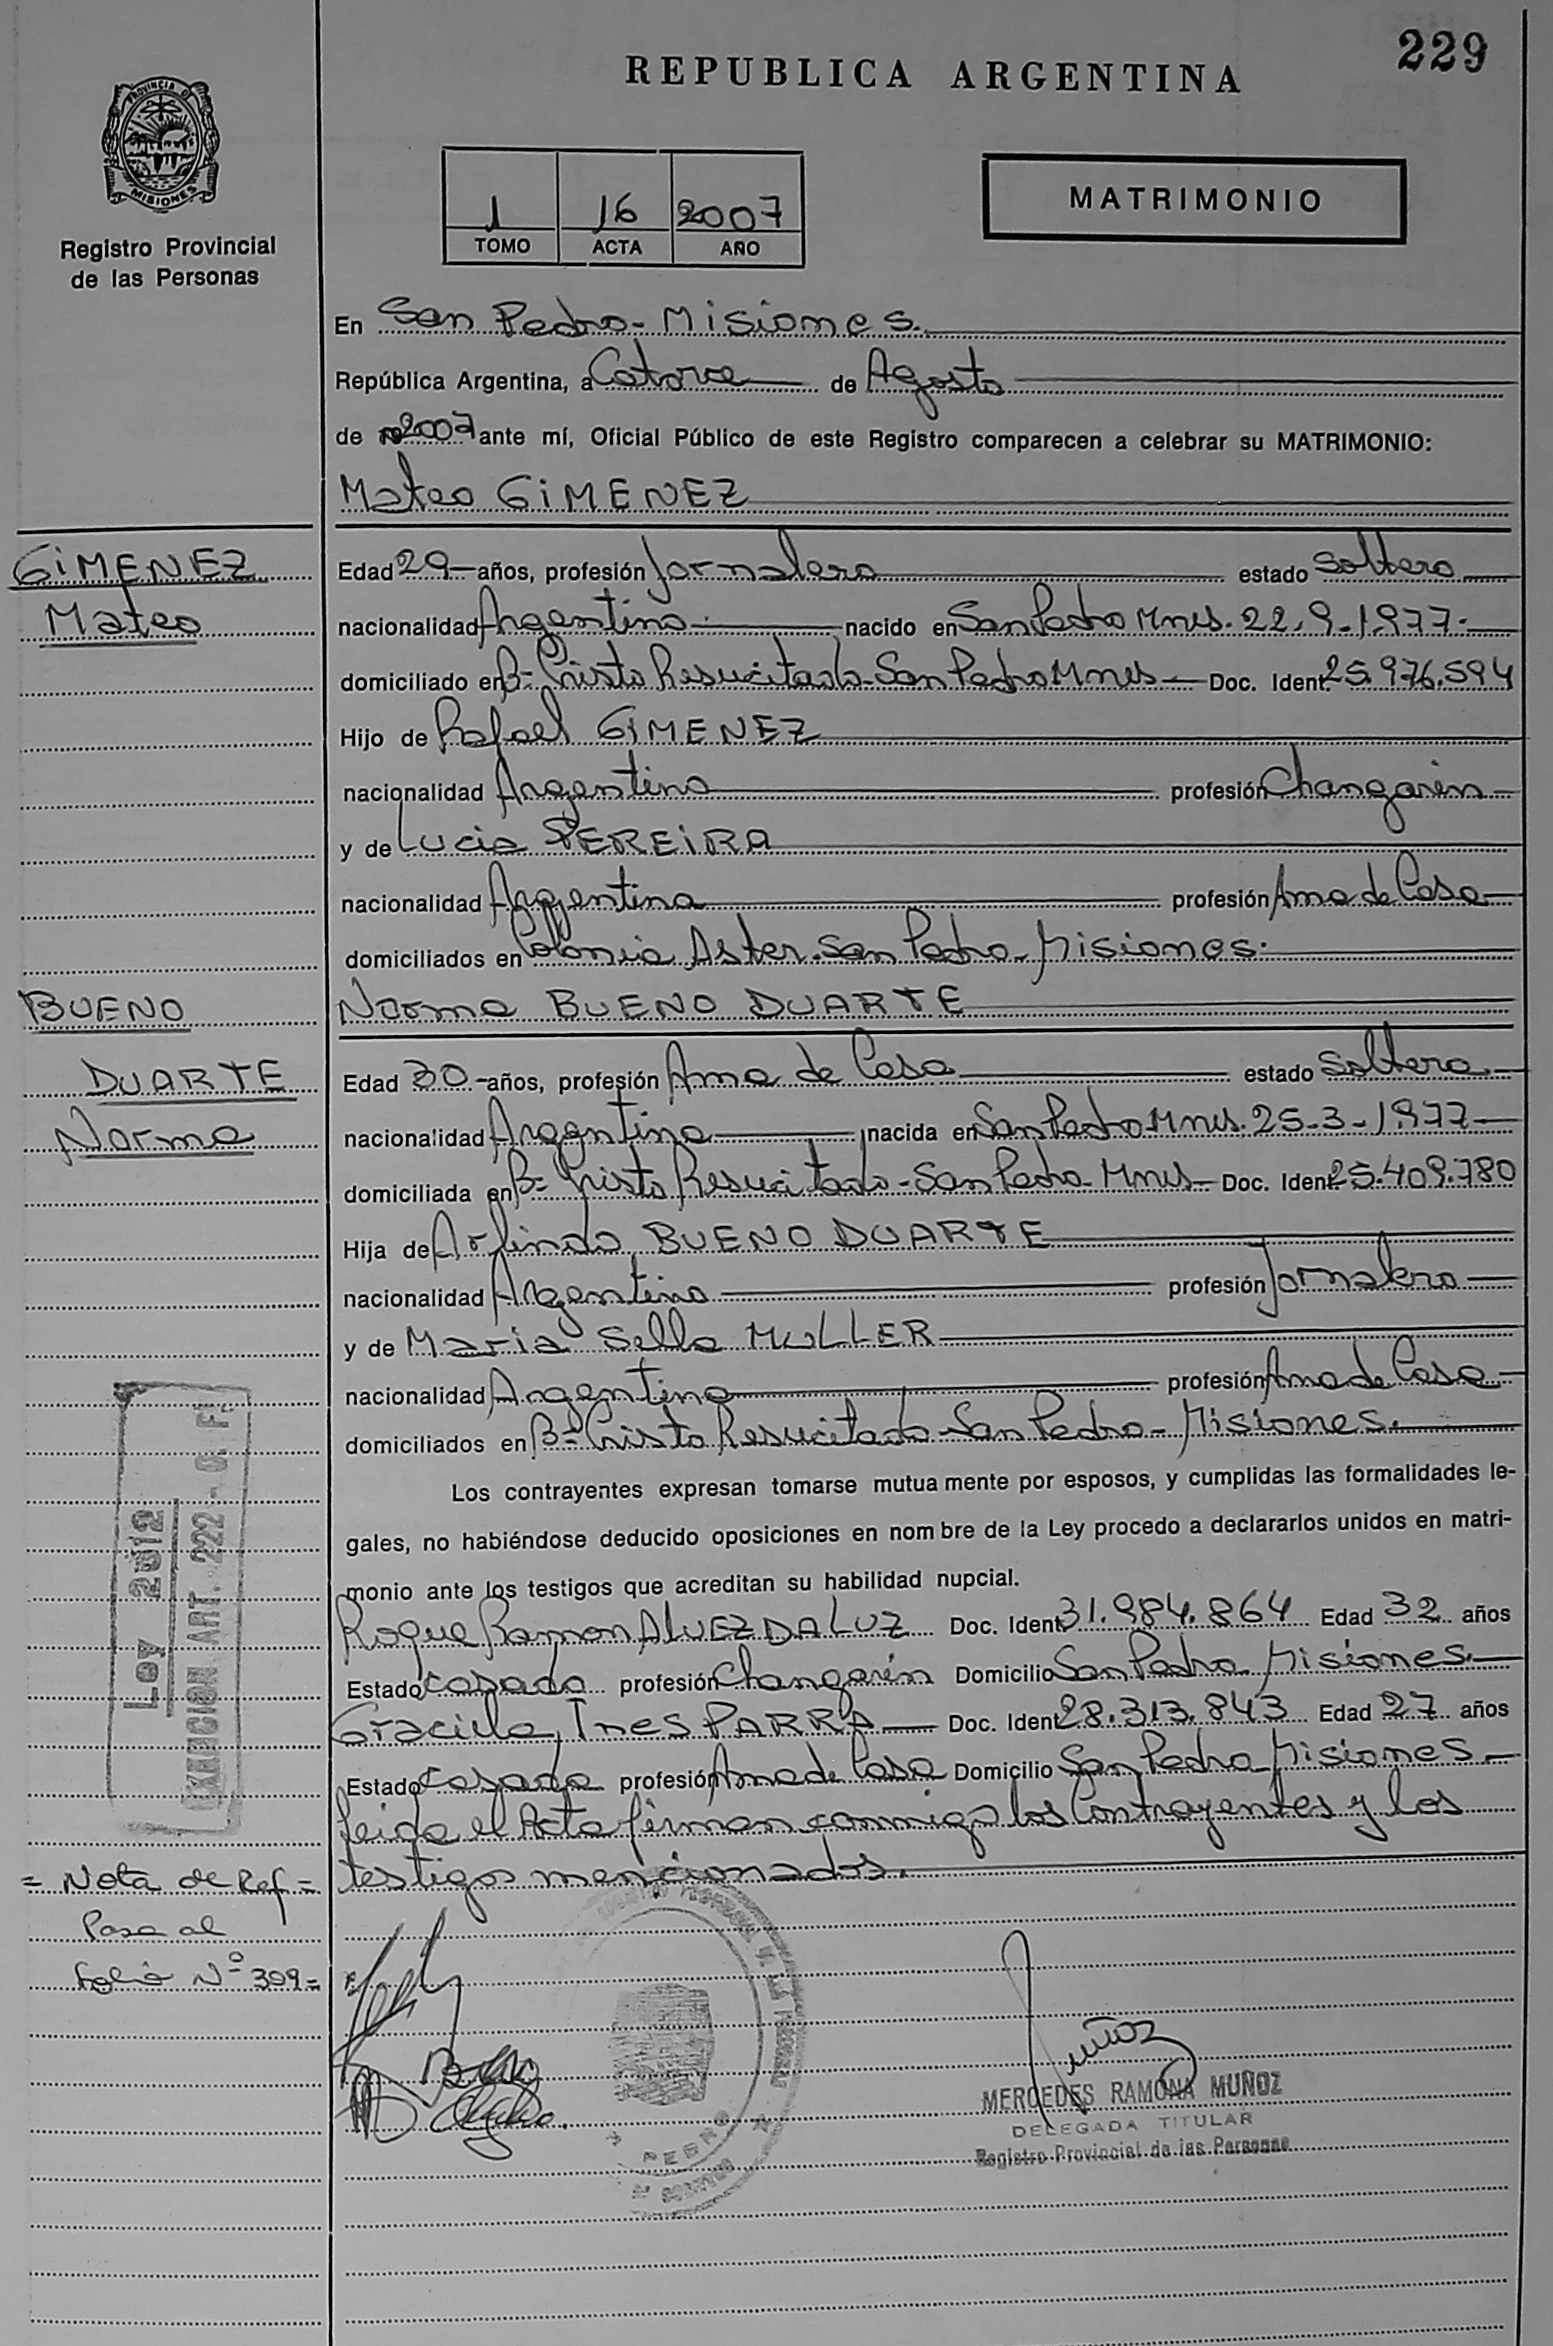 229
REPUBLICA ARGENTINA
PROVINCIA D
MISIONES
Registro Provincial
de las Personas
1 16 2007
TOMO ACTA AÑO
MATRIMONIO
En San Pedro - Misiones.
República Argentina, a Catorce de Agosto
de 2007 ante mí, Oficial Público de este Registro comparecen a celebrar su MATRIMONIO:
Mateo GiMENEZ
GiMENEZ
Mateo
Edad 29 años, profesión Jornalero estado Soltero
nacionalidad Argentina nacido en San Pedro Mnes. 22-9-1977-
domiciliado en B= Cristo Resucitado - San Pedro Mnes - Doc. Ident. 25.976.594
Hijo de Rafael GiMENEZ
nacionalidad Argentina profesión Changarín
y de Lucia PEREiRA
nacionalidad Argentina profesión Ama de Casa
domiciliados en Colonia Aster. San Pedro - Misiones.
BUENO
DUARTE
Norma
Norma BUENO DUARTE
Edad 30 años, profesión Ama de Casa estado Soltera
nacionalidad Argentina nacida en San Pedro Mnes. 25-3-1977
domiciliada en B= Cristo Resucitado - San Pedro - Mnes - Doc. Ident. 25.409.780
Hija de Arlindo BUENO DUARTE
nacionalidad Argentina profesión Jornalero
y de Maria Sella MULLER
nacionalidad Argentina profesión Ama de Casa
domiciliados en B= Cristo Resucitado - San Pedro - Misiones.
Los contrayentes expresan tomarse mutua mente por esposos, y cumplidas las formalidades le-
gales, no habiéndose deducido oposiciones en nom bre de la Ley procedo a declararlos unidos en matri-
monio ante los testigos que acreditan su habilidad nupcial.
Roque Ramon ALVEZ DA LUZ Doc. Ident. 31.984.864 Edad 32 años
Estado casado profesión Changarín Domicilio San Pedro - Misiones.
Graciela Ines PARRA Doc. Ident. 28.313.843 Edad 27 años
Estado casada profesión Ama de Casa Domicilio San Pedro Misiones -
Leida el Acta firman conmigo los Contrayentes y los
testigos mencionados.
Ley 2012
EXENCION ART. 222 - C. F.
= Nota de Ref =
Pasa al
Folio Nº 309=
PEDRO
MUÑOZ
MERCEDES RAMONA MUÑOZ
DELEGADA TITULAR
Registro Provincial de las Personas